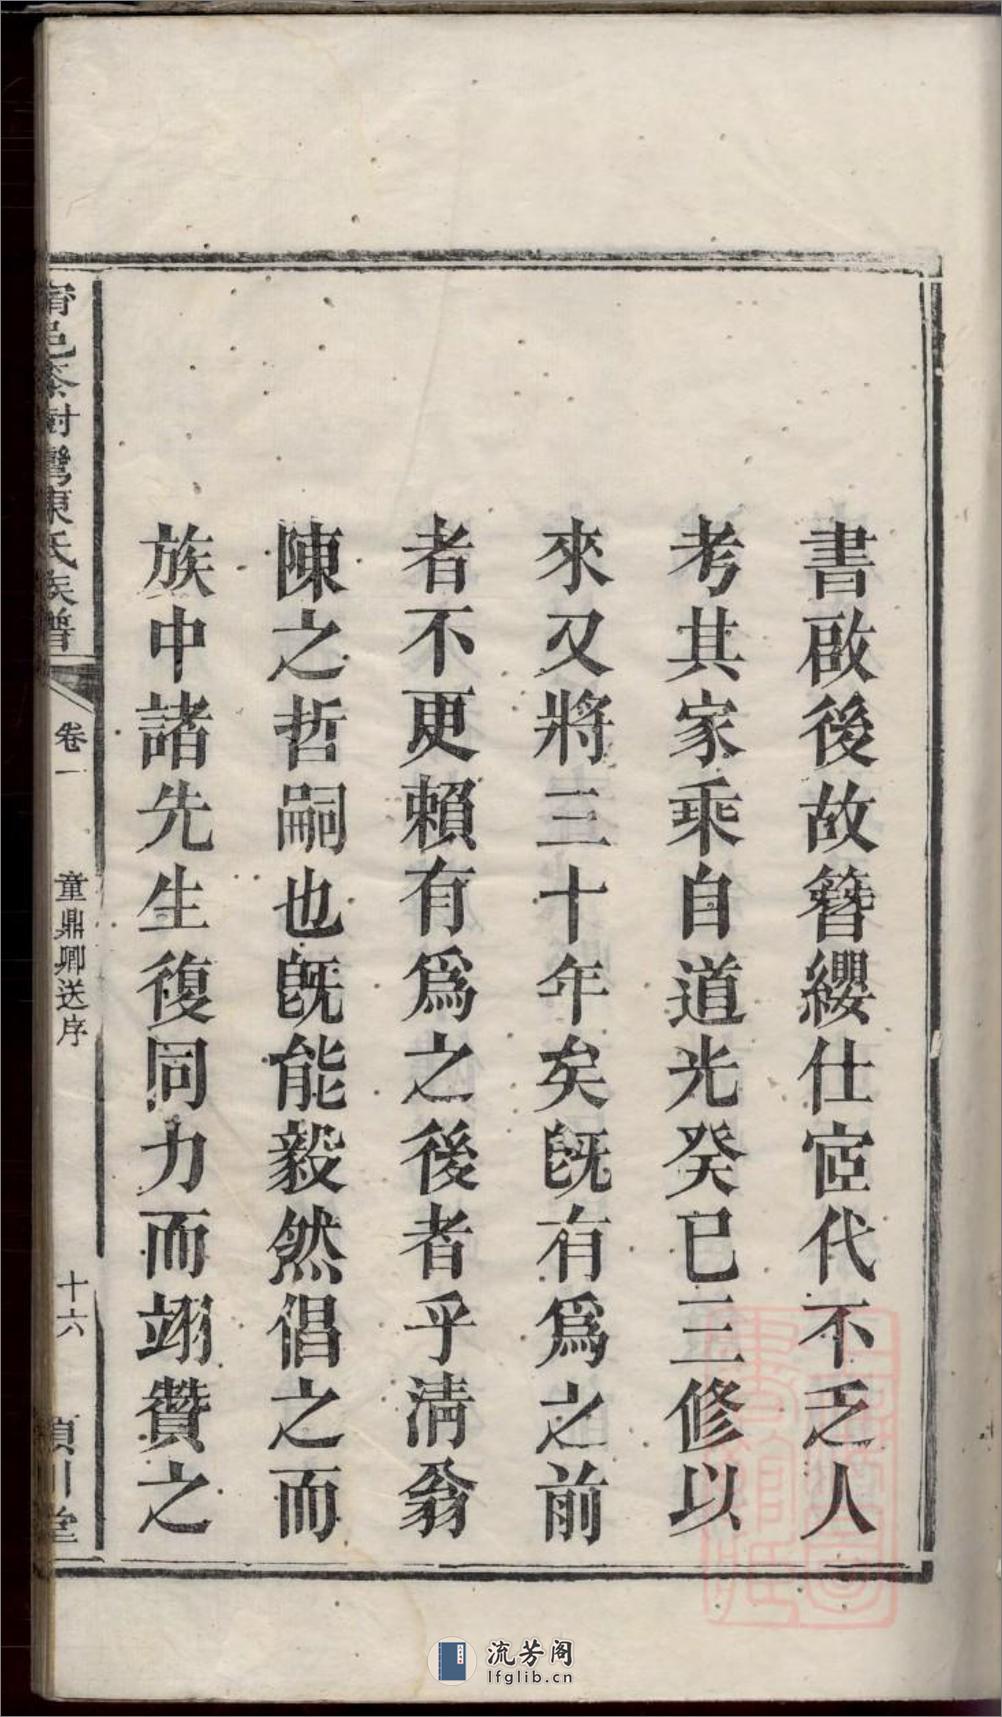 書啟後故簪纓仕宦代不乏人
考其家乘自道光癸巳三修以
來又將三十年矣既有爲之前
者不更賴有爲之後者乎清翁
陳之哲嗣也既能毅然倡之而
族中諸先生復同力而翊贊之
甯邑茶樹灣陳氏族譜
卷一
童鼎卿送序
十六
潁川堂
流芳阁
lfglib.cn